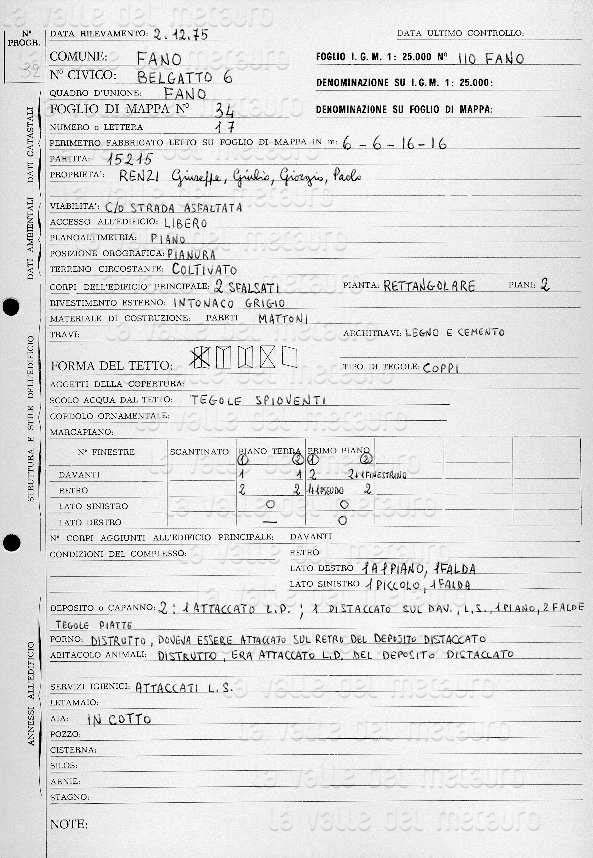 N° PROGR.
32
DATA RILEVAMENTO: 2.12.75 DATA ULTIMO CONTROLLO:
COMUNE: FANO FOGLIO I.G.M. 1: 25.000 N° 110 FANO
N° CIVICO: BELGATTO 6 DENOMINAZIONE SU I.G.M. 1: 25.000:
QUADRO D'UNIONE: FANO
FOGLIO DI MAPPA N° 34 DENOMINAZIONE SU FOGLIO DI MAPPA:
NUMERO o LETTERA 17
PERIMETRO FABBRICATO LETTO SU FOGLIO DI MAPPA IN m: 6-6-16-16
PARTITA: 15215
PROPRIETA': RENZI Giuseppe, Giulio, Giorgio, Paolo
DATI CATASTALI
VIABILITA': C/O STRADA ASFALTATA
ACCESSO ALL'EDIFICIO: LIBERO
PLANOALTIMETRIA: PIANO
POSIZIONE OROGRAFICA: PIANURA
TERRENO CIRCOSTANTE: COLTIVATO
DATI AMBIENTALI
CORPI DELL'EDIFICIO PRINCIPALE: 2 SFALSATI PIANTA: RETTANGOLARE PIANI: 2
RIVESTIMENTO ESTERNO: INTONACO GRIGIO
MATERIALE DI COSTRUZIONE: PARETI MATTONI
TRAVI: ARCHITRAVI: LEGNO E CEMENTO
FORMA DEL TETTO: TIPO DI TEGOLE: COPPI
AGGETTI DELLA COPERTURA:
SCOLO ACQUA DAL TETTO: TEGOLE SPIOVENTI
CORDOLO ORNAMENTALE:
MARCAPIANO:
N° FINESTRE SCANTINATO PIANO TERRA PRIMO PIANO
1 2 1 2
DAVANTI 1 1 2 2+1FINESTRINO
RETRO 2 2 4+1PSEUDO 2
LATO SINISTRO O O
LATO DESTRO — O
N° CORPI AGGIUNTI ALL'EDIFICIO PRINCIPALE: DAVANTI
CONDIZIONI DEL COMPLESSO: RETRO
LATO DESTRO 1 A 1 PIANO, 1 FALDA
LATO SINISTRO 1 PICCOLO, 1 FALDA
STRUTTURA E STILE DELL'EDIFICIO
DEPOSITO o CAPANNO: 2: 1 ATTACCATO L.D.; 1 DISTACCATO SUL DAV., L.S., 1 PIANO, 2 FALDE
TEGOLE PIATTE
FORNO: DISTRUTTO, DOVEVA ESSERE ATTACCATO SUL RETRO DEL DEPOSITO DISTACCATO
ABITACOLO ANIMALI: DISTRUTTO, ERA ATTACCATO L.D. DEL DEPOSITO DISTACCATO
SERVIZI IGIENICI: ATTACCATI L.S.
LETAMAIO:
AIA: IN COTTO
POZZO:
CISTERNA:
SILOS:
ARNIE:
STAGNO:
ANNESSI ALL'EDIFICIO
NOTE:
la valle del metauro